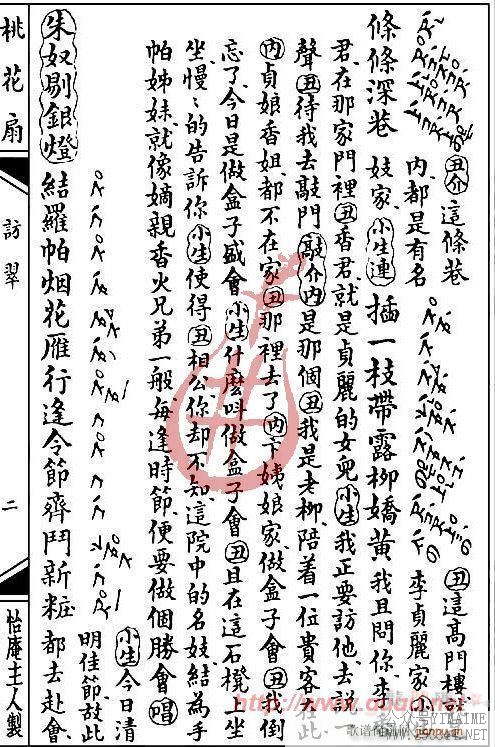 條條深巷 丑介 這條巷內都是有名妓家 小生連 插一枝帶露柳嬌黃 丑 這高門樓就李貞麗家 小 我且問你李
君在那家門裡 丑 香君就是貞麗的女兒 小生 我正要訪他去說
聲 丑 待我去敲門 敲介內 是那個 丑 我是老柳陪着一位貴客在此
內 貞娘香姐都不在家 丑 那裡去了 內 卞姨娘家做盒子會 丑 我倒
忘了今日是做盒子盛會 小生 什麼叫做盒子會 丑 且在這石櫈上坐
坐慢〻的告訴你 小生 使得 丑 相公你却不知這院中的名妓結為手
帕姊妹就像嫡親香火兄弟一般每逢時節便要做個勝會 唱
朱奴剔銀燈 結羅帕烟花雁行逢令節齊鬥新粧 小生 今日清明佳節故此都去赴會
桃花扇
訪翠
二
怡庵主人製